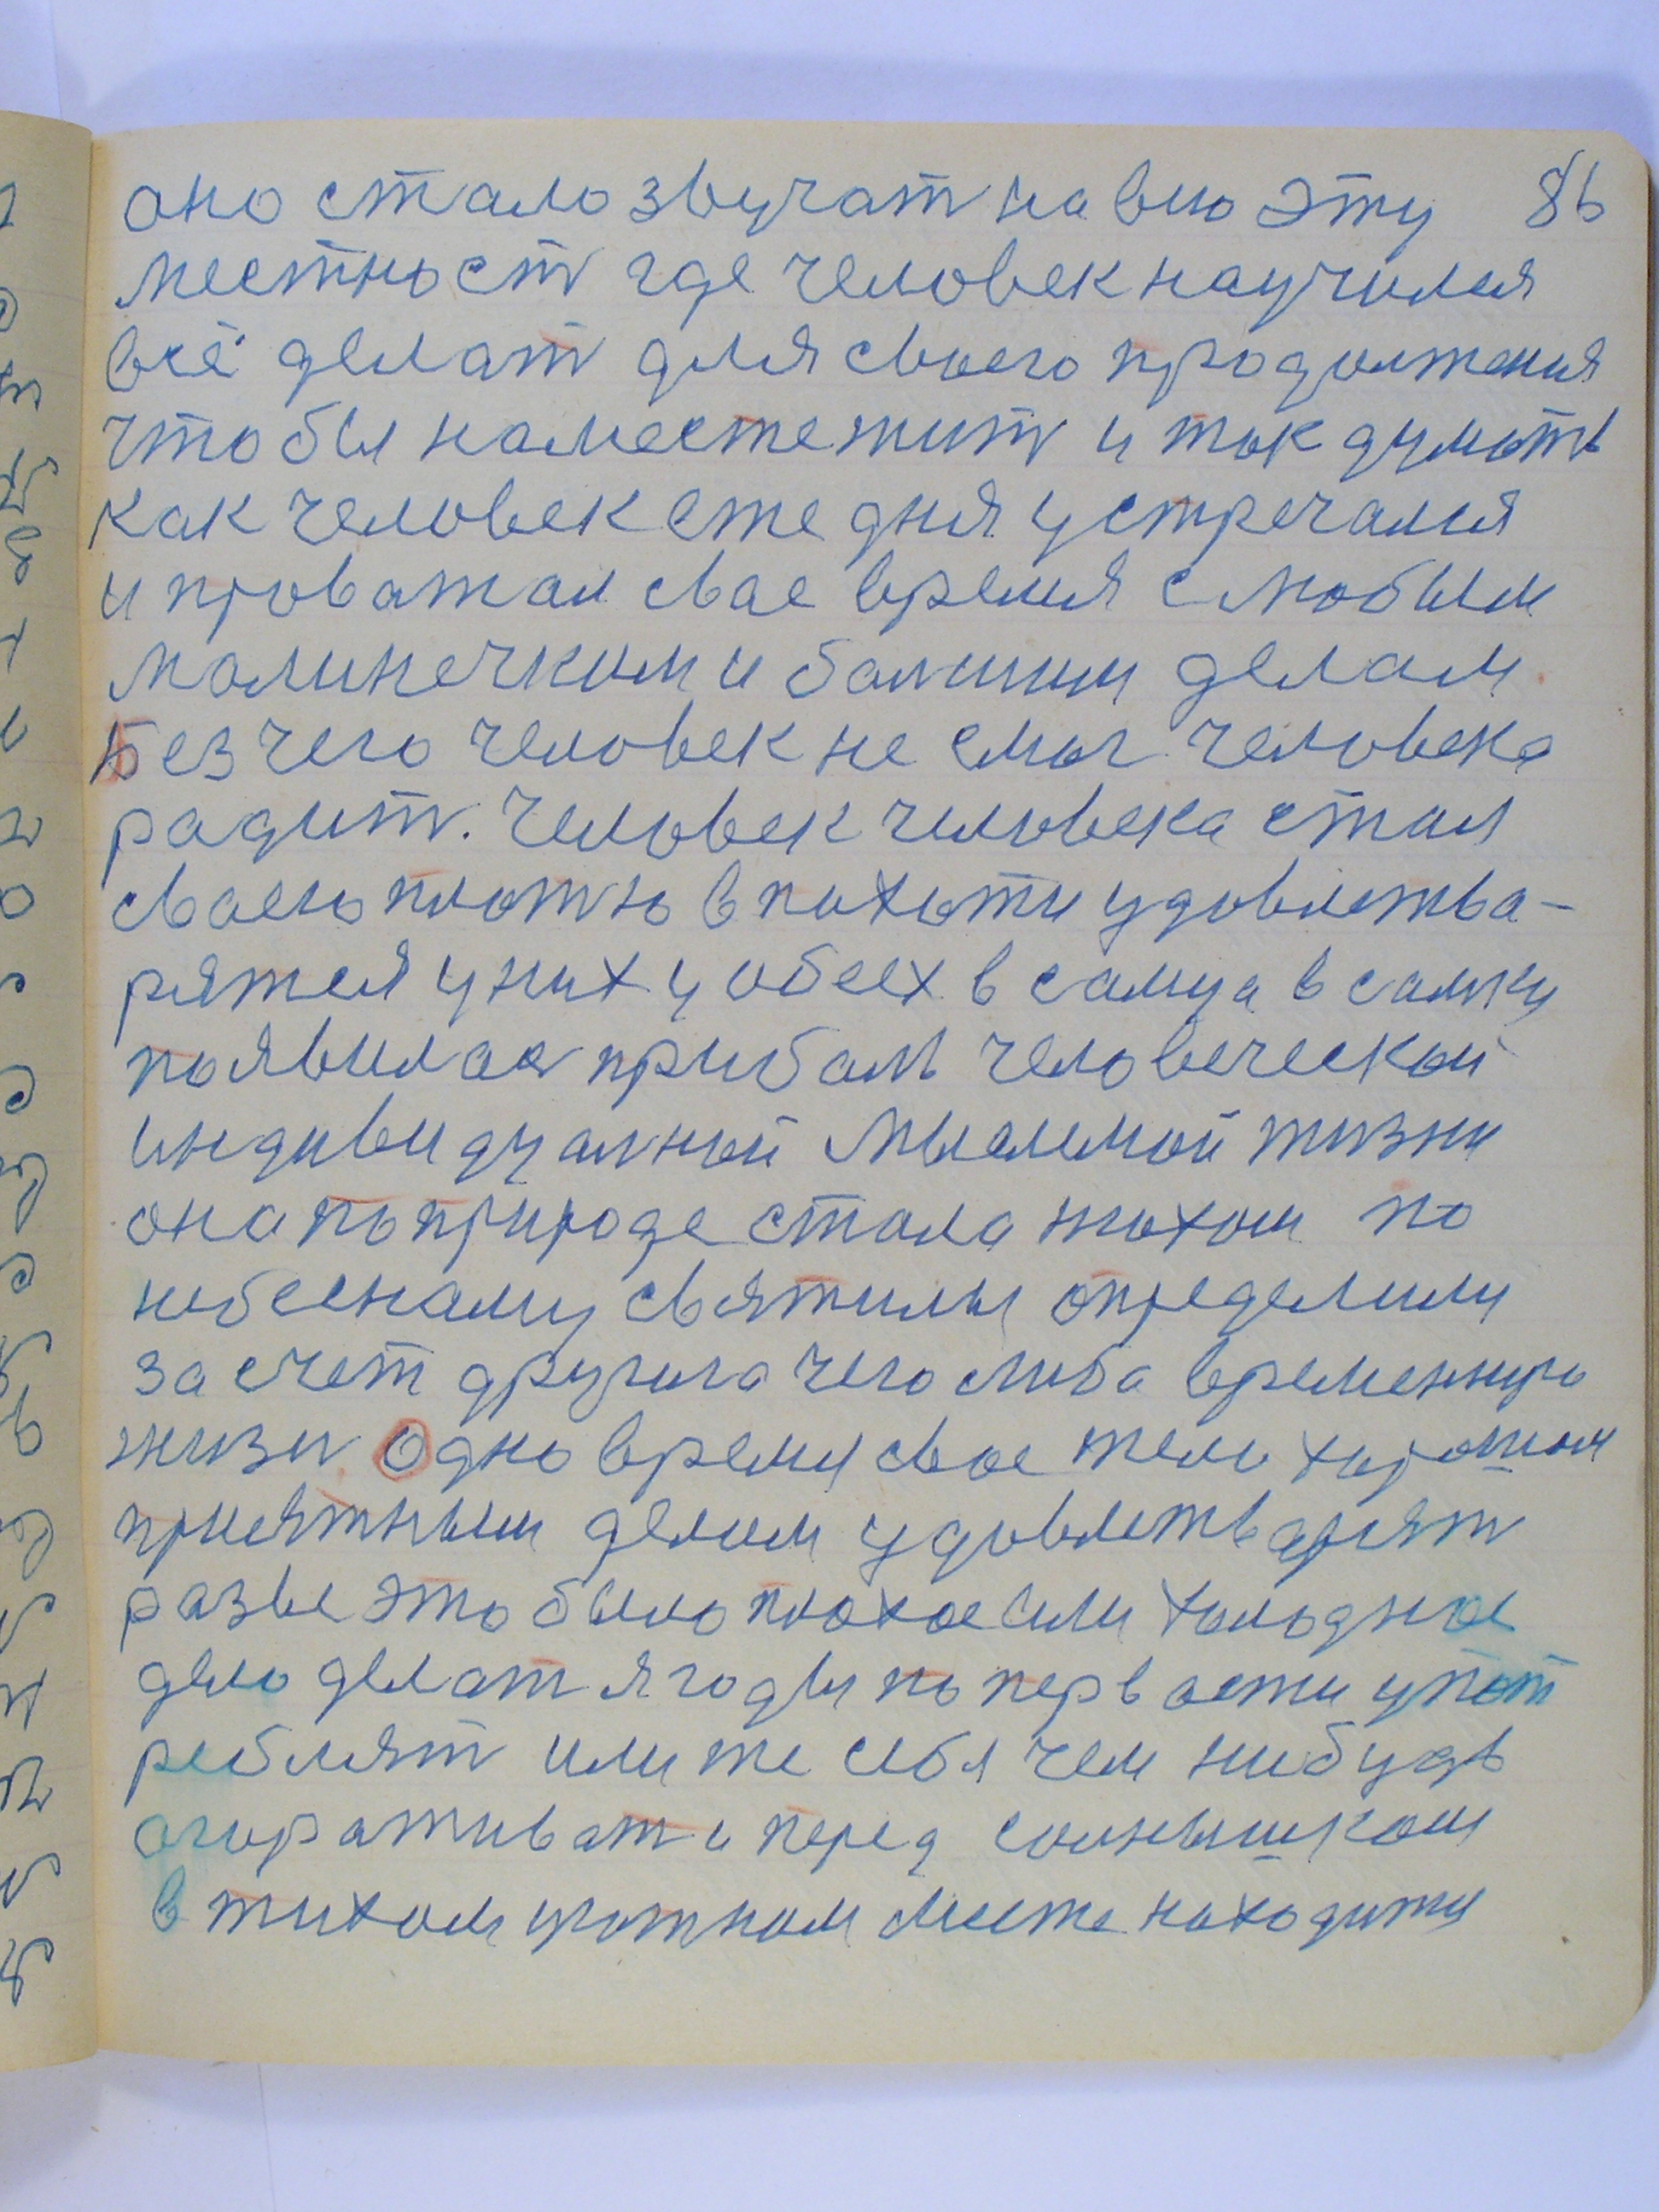 оно стало звучат на всю эту 86
местност где человек научился
всё делат для своего продолжения
что бы на месте жит и так думать
как человек еже дня устречался
и проважал свае время с любым
малинечким и балшим делам
Без чего человек не смог человека
радит. Человек человека стал
сваею плотью в похоти удовлетва-
рятся у них у обеех в самца в самку
появилас прибаль человеческой
индивидуалной мыслимой жизни
она по природе стала
небеснаму святилы определили
за счет другога чего либа временную
жизн Одно время свое тело хорошом
приятным делом удовлетварят
разве это было плохое или холодное
дело делат ягоды по первости упот
реблят или же себя чем нибудь
огораживат и перед солнышком
в тихом уютном месте находится